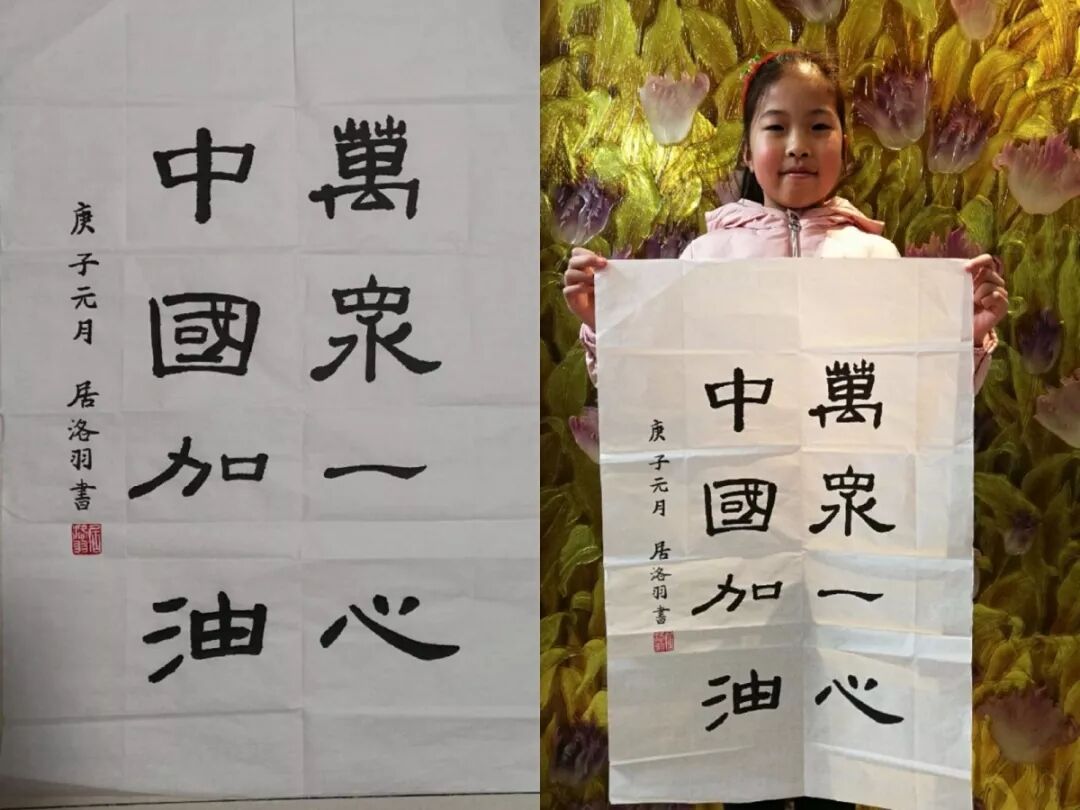 萬眾一心
中國加油
庚子元月 居洛羽書
萬眾一心
中國加油
庚子元月 居洛羽書